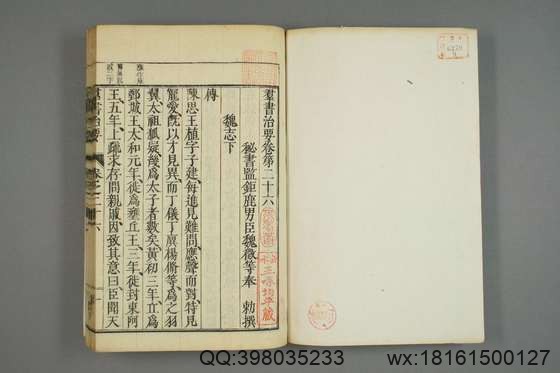 羣書治要卷第二十六
秘書監鉅鹿男臣魏徵等奉　勅撰
魏志下
傳
陳思王植字子建每進見難問應聲而對特見
寵愛既以才見異而丁儀丁廙楊脩等爲之羽
翼太祖狐疑幾爲太子者數矣黃初三年立爲
鄄城王太和元年徙爲雍丘王三年徙封東阿
王五年上疏求存問親戚因致其意曰臣聞天
QQ:398035233
wx:18161500127